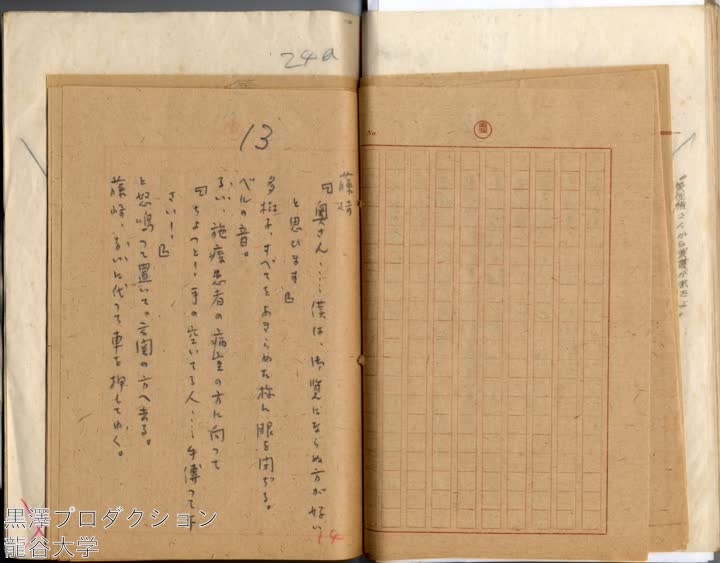 24a
13
藤崎
「奥さん……僕は、御覧にならぬ方が好い
と思ひます」
多樹子、すべてをあきらめた様に眼を閉ぢる。
ベルの音。
るい、施療患者の病室の方に向って
「ちょっと！手の空いてる人……手傳って下
さい！」
と怒鳴って置いて、玄関の方へ去る。
藤崎、るいに代って車を押してゆく。
No.
黒澤プロダクション
龍谷大学